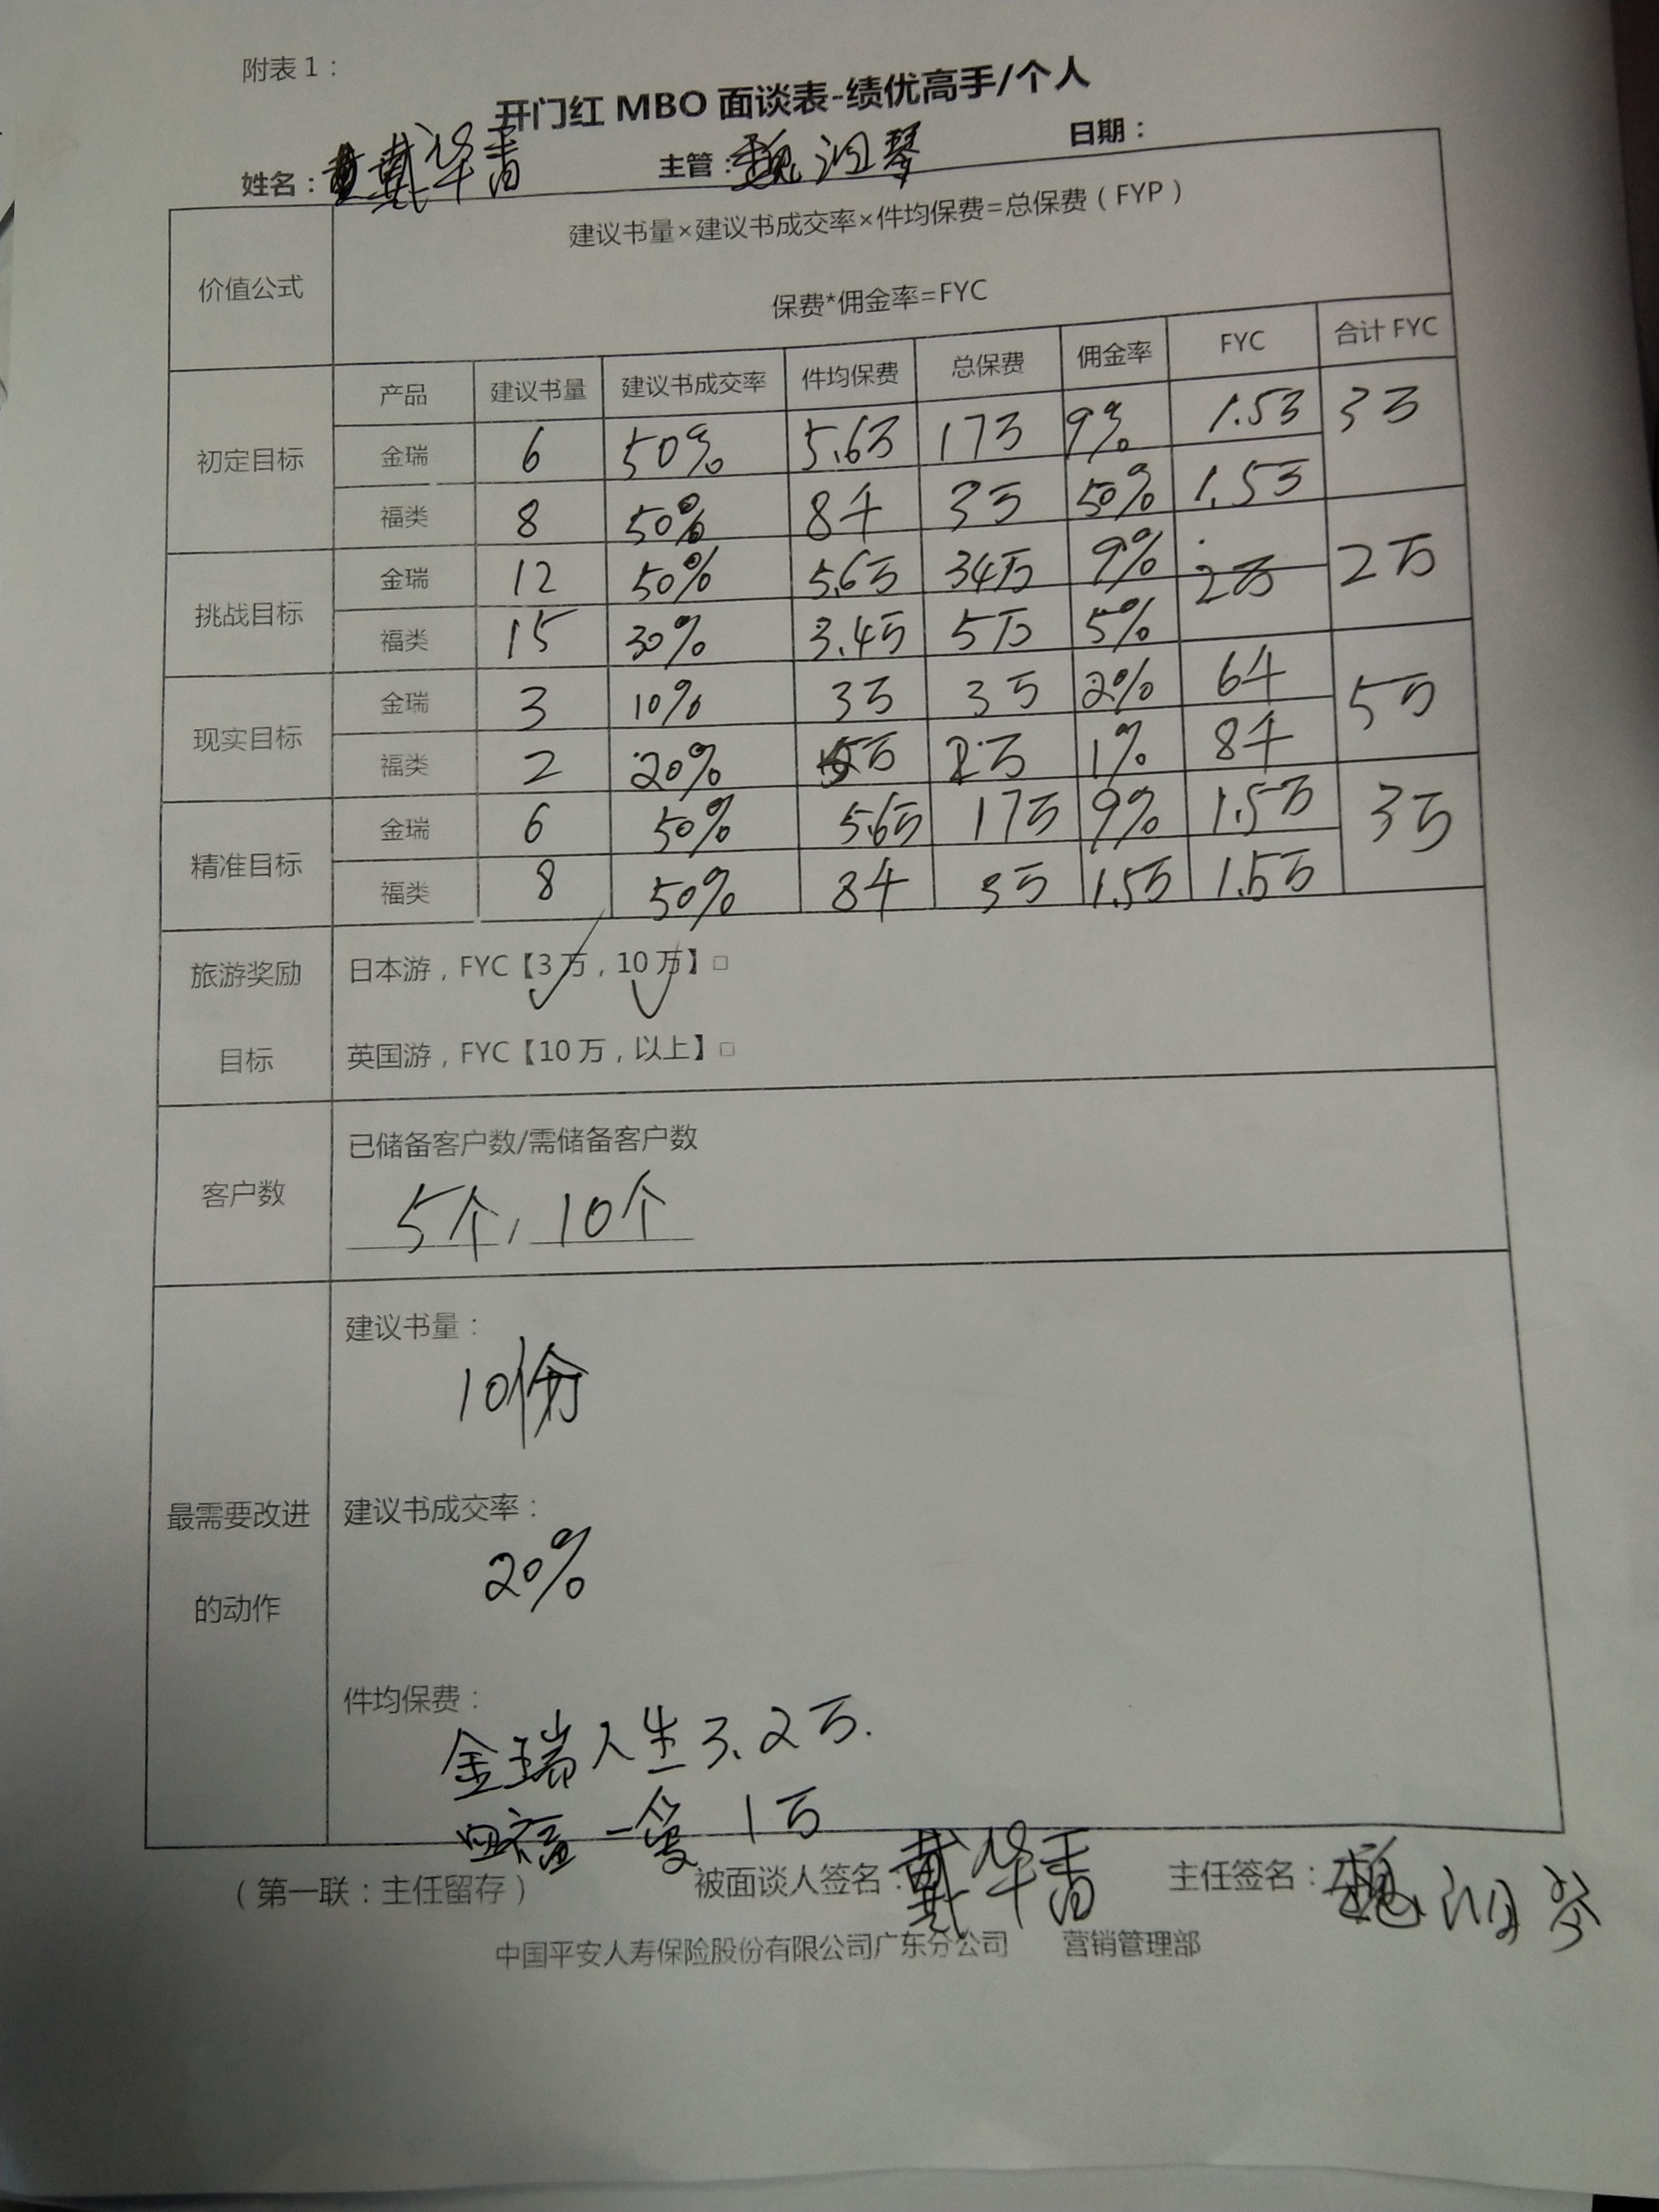 附表1：
开门红 MBO 面谈表-绩优高手/个人
姓名：戴华青 主管：魏汩琴 日期：
价值公式 建议书量×建议书成交率×件均保费=总保费（FYP）
保费*佣金率=FYC
产品 建议书量 建议书成交率 件均保费 总保费 佣金率 FYC 合计 FYC
初定目标 金瑞 6 50% 5.6万 17万 9% 1.5万 3万
福类 8 50% 8千 3万 50% 1.5万
挑战目标 金瑞 12 50% 5.6万 34万 9% 2万 2万
福类 15 30% 3.4万 5万 5%
现实目标 金瑞 3 10% 3万 3万 2% 6千 5万
福类 2 20% 5万 2万 1% 8千
精准目标 金瑞 6 50% 5.6万 17万 9% 1.5万 3万
福类 8 50% 8千 3万 1.5万 1.5万
旅游奖励 日本游，FYC【3万，10万】□
目标 英国游，FYC【10万，以上】□
客户数 已储备客户数/需储备客户数
5个，10个
建议书量：
10份
最需要改进 建议书成交率：
20%
的动作
件均保费：
金瑞人生3.2万.
1万
（第一联：主任留存） 被面谈人签名：戴华青 主任签名：魏汩琴
中国平安人寿保险股份有限公司广东分公司 营销管理部